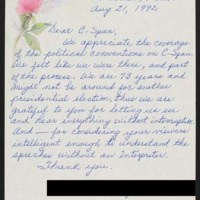 Aug 21, 1992
Dear C-Span,
We appreciate the coverage
of the political conventions on C-Span.
We felt like we were there, and part
of the process. We are 75 years and
might not be around for another
presidential election, thus we are
grateful to you for letting us see
and hear everything without interruption.
And — for considering your viewers
intelligent enough to understand the
speeches without an interpreter.
Thank you.